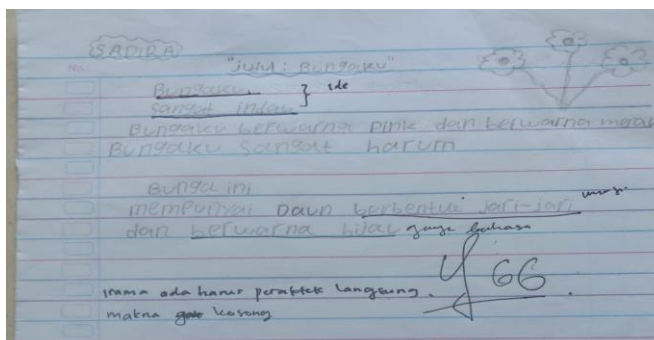 SADIRA
No.:
"judul: Bungaku"
Bungaku
sangat indah } ide
Bungaku berwarna pink dan berwarna merah
Bungaku sangat harum
Bunga ini
mempunyai Daun berbentuk jari-jari
dan berwarna hijau gaya bahasa
irama ada harus peraktek langsung.
makna kosong
66